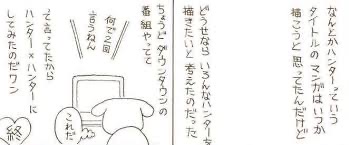 なんとかハンターっていう
タイトルのマンガはいつか
描こうと思ってたんだけど
どうせならいろんなハンターを
描きたいと考えたのだった
ちょうどダウンタウンの
番組やってて
何で2回
言うねん
って言ってたから
ハンター×ハンターに
してみたのだワン
これだ
終